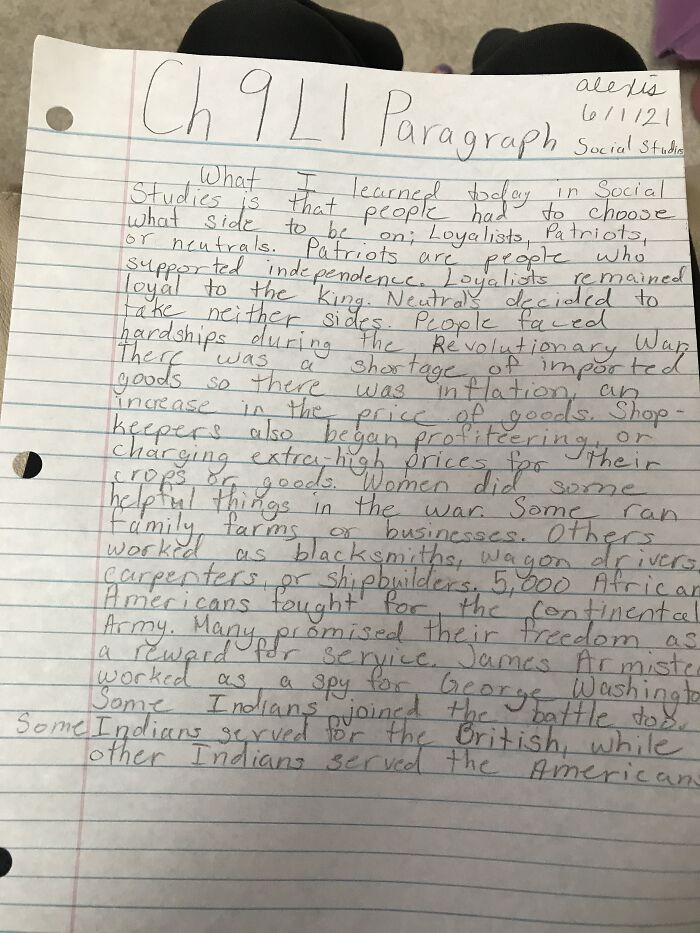 alexis
6/1/21
Ch 9 L1 Paragraph
Social Studies
What I learned today in Social
Studies is that people had to choose
what side to be on; Loyalists, Patriots,
or neutrals. Patriots are people who
supported independence. Loyalists remained
loyal to the King. Neutrals decided to
take neither sides. People faced
hardships during the Revolutionary War.
There was a shortage of imported
goods so there was inflation, an
increase in the price of goods. Shop-
keepers also began profiteering, or
charging extra-high prices for their
crops or goods. Women did some
helpful things in the war. Some ran
family farms or businesses. Others
worked as blacksmiths, wagon drivers,
carpenters, or shipbuilders. 5,000 African
Americans fought for the Continental
Army. Many promised their freedom as
a reward for service. James Armiste
worked as a spy for George Washingto
Some Indians joined the battle too.
Some Indians served for the British, while
other Indians served the American